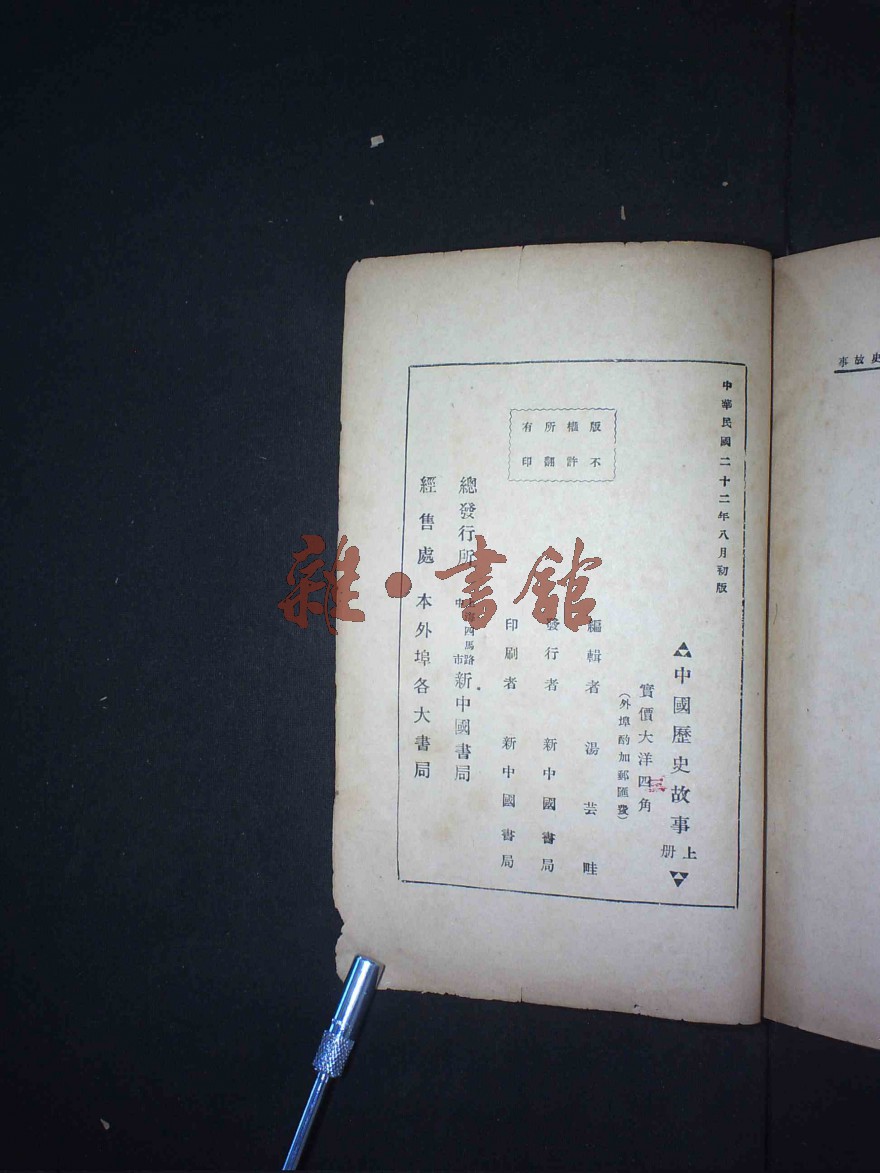 史故事
中華民國二十二年八月初版
中國歷史故事上册
實價大洋四角
三
(外埠酌加郵匯費)
版權所有
不許翻印
編輯者 湯芸畦
發行者 新中國書局
印刷者 新中國書局
總發行所 上海四馬路中市 新中國書局
經售處 本外埠各大書局
雜·書館